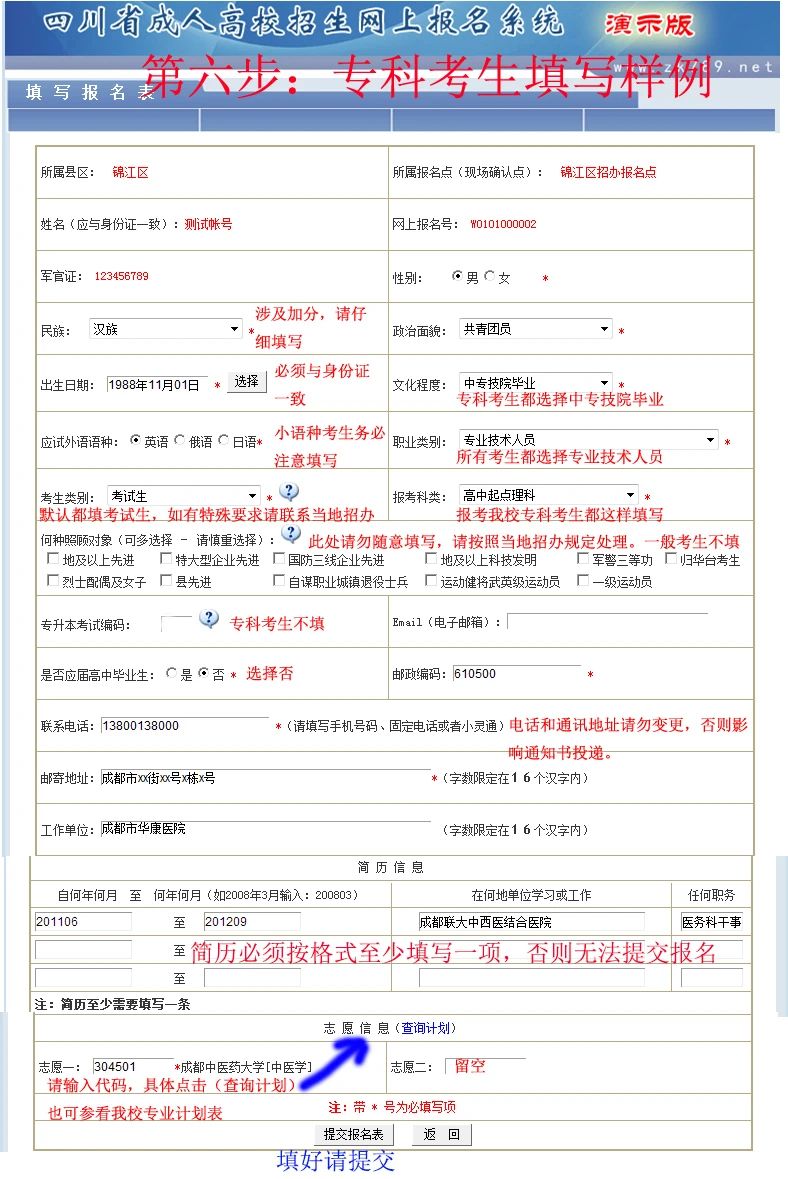 四川省成人高校招生网上报名系统 演示版
www.zk789.net
第六步：专科考生填写样例
填写报名表
所属县区： 锦江区 所属报名点（现场确认点）： 锦江区招办报名点
姓名（应与身份证一致）：测试帐号 网上报名号： W0101000002
军官证： 123456789 性别： 男 女 *
民族： 汉族 * 涉及加分，请仔细填写 政治面貌： 共青团员 *
出生日期： 1988年11月01日 * 选择 必须与身份证一致 文化程度： 中专技院毕业 *
专科考生都选择中专技院毕业
应试外语语种： 英语 俄语 日语* 小语种考生务必注意填写 职业类别： 专业技术人员 *
所有考生都选择专业技术人员
考生类别： 考试生 * ? 报考科类： 高中起点理科 *
默认都填考试生，如有特殊要求请联系当地招办 报考我校专科考生都这样填写
何种照顾对象（可多选择 - 请慎重选择）： ? 此处请勿随意填写，请按照当地招办规定处理。一般考生不填
地及以上先进 特大型企业先进 国防三线企业先进 地及以上科技发明 军警三等功 归华台考生
烈士配偶及女子 县先进 自谋职业城镇退役士兵 运动健将武英级运动员 一级运动员
专升本考试编码： ? 专科考生不填 Email（电子邮箱）：
是否应届高中毕业生： 是 否 * 选择否 邮政编码： 610500 *
联系电话： 13800138000 *（请填写手机号码、固定电话或者小灵通） 电话和通讯地址请勿变更，否则影响通知书投递。
邮寄地址： 成都市xx街xx号x栋x号 *（字数限定在16个汉字内）
工作单位： 成都市华康医院 （字数限定在16个汉字内）
简 历 信 息
自何年何月 至 何年何月（如2008年3月输入：200803） 在何地单位学习或工作 任何职务
201106 至 201209 成都联大中西医结合医院 医务科干事
至 简历必须按格式至少填写一项，否则无法提交报名
至
注：简历至少需要填写一条
志 愿 信 息（查询计划）
志愿一： 304501 *成都中医药大学[中医学] 志愿二： 留空
请输入代码，具体点击（查询计划）
也可参看我校专业计划表 注：带 * 号为必填写项
提交报名表 返 回
填好请提交